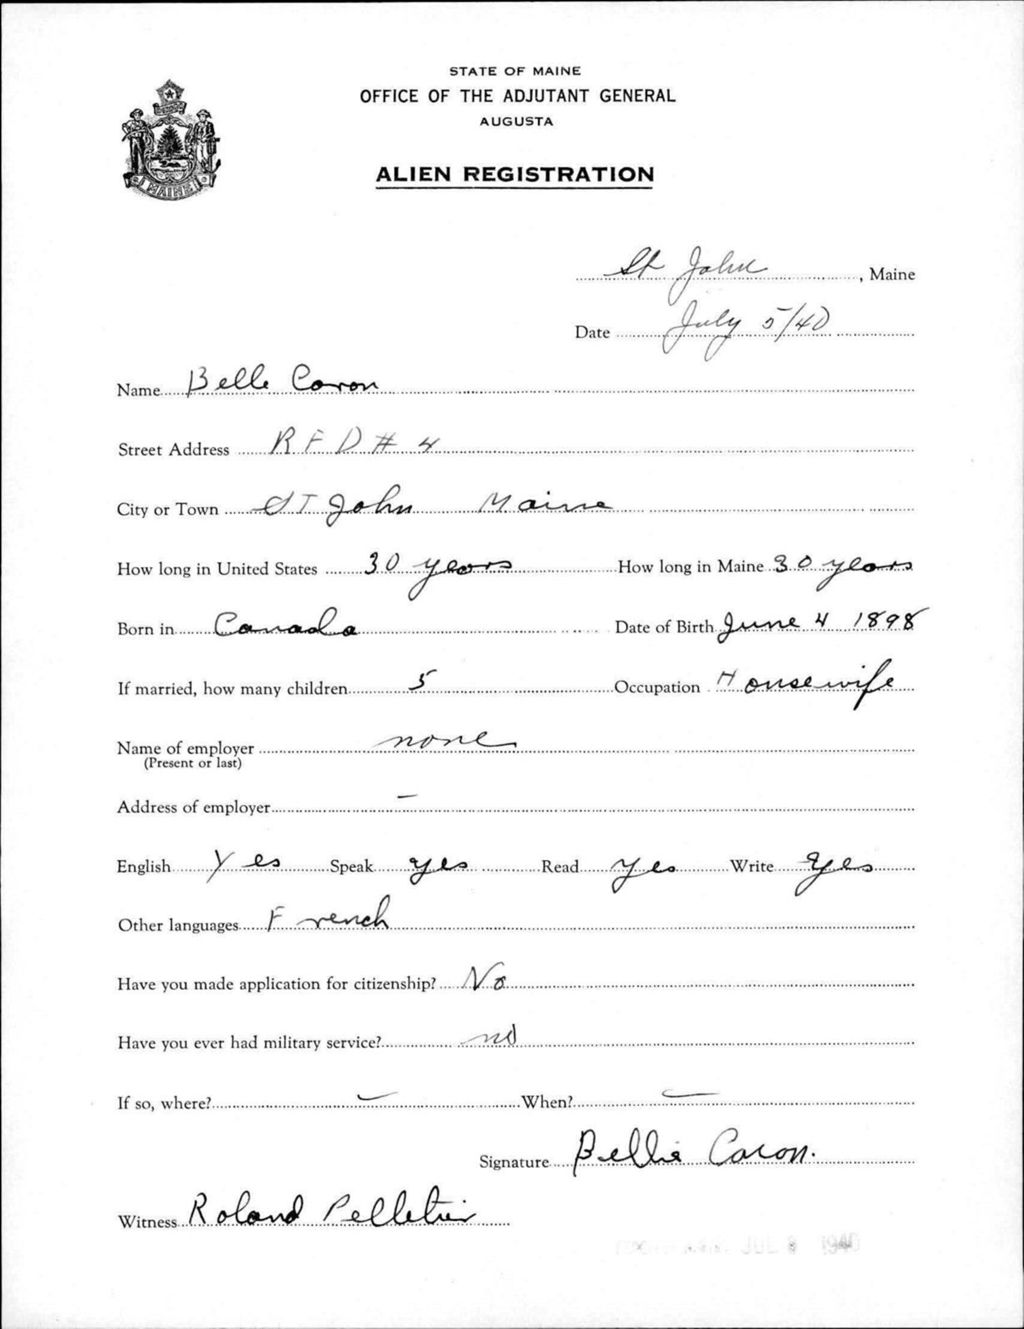 STATE OF MAINE
OFFICE OF THE ADJUTANT GENERAL
AUGUSTA
ALIEN REGISTRATION
MAINE
St John, Maine
Date July 5/40
Name Belle Caron
Street Address R F D # 4
City or Town ST John Maine
How long in United States 30 years How long in Maine 30 years
Born in Canada Date of Birth June 4 1898
If married, how many children 5 Occupation Housewife
Name of employer none
(Present or last)
Address of employer –
English Yes Speak yes Read yes Write yes
Other languages French
Have you made application for citizenship? No
Have you ever had military service? no
If so, where? – When? –
Signature Bellie Caron.
Witness Roland Pelletier
JUL 8 1940